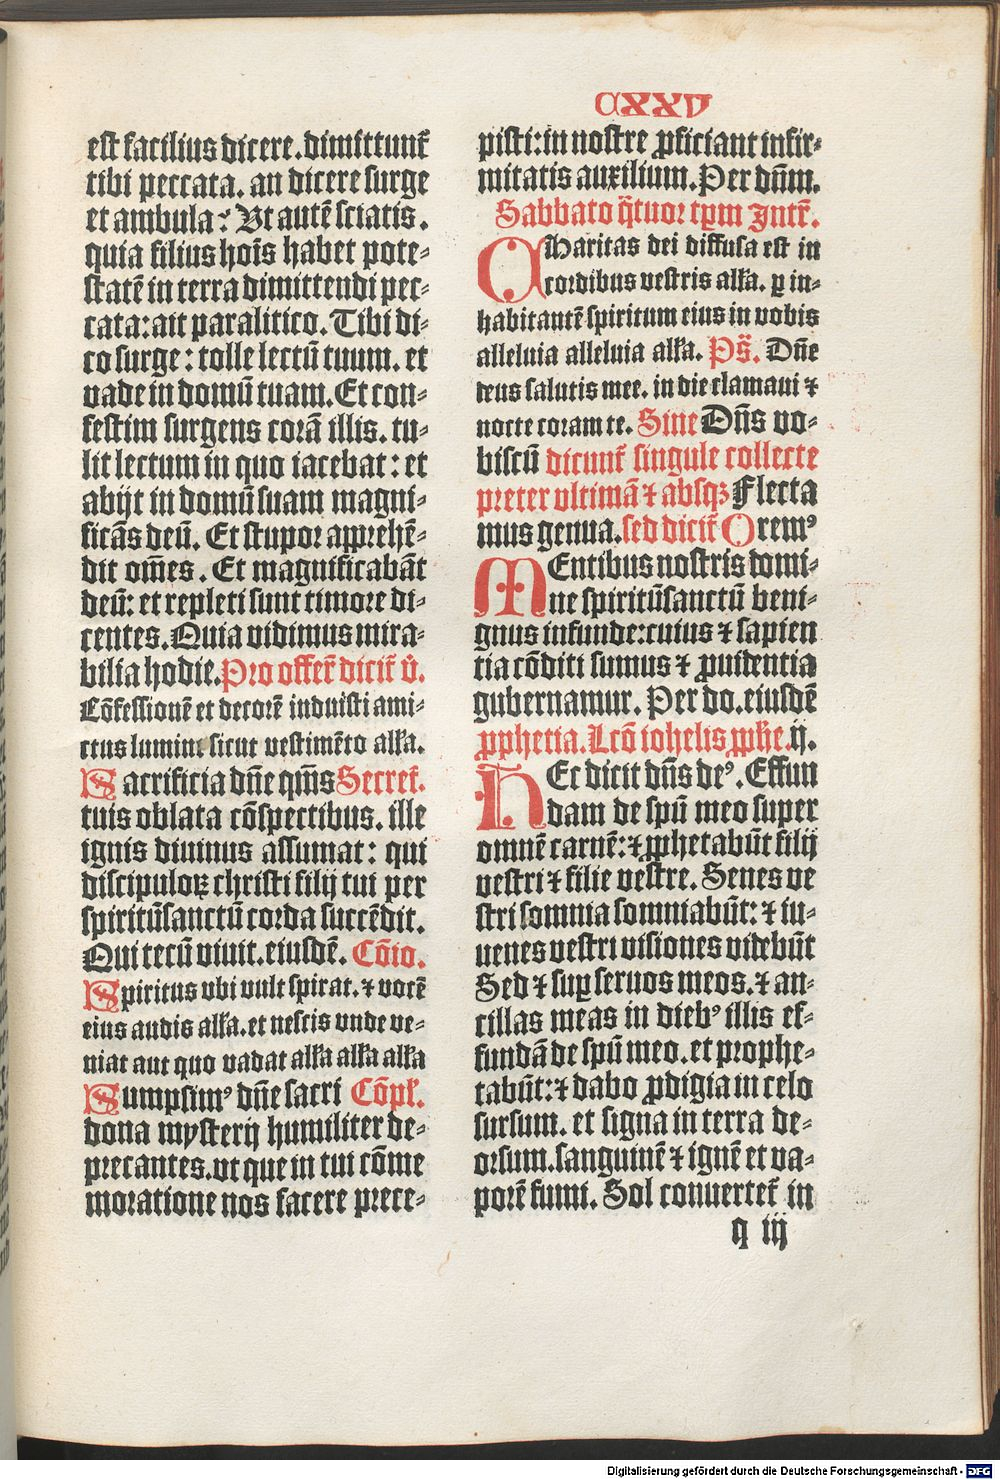 CXXV
est facilius dicere. dimittunt̃
tibi peccata. an dicere surge
et ambula? Ut autē sciatis.
quia filius hoīs habet pote⸗
statē in terra dimittendi pec⸗
cata: ait paralitico. Tibi di⸗
co surge: tolle lectū tuum. et
vade in domū tuam. Et con⸗
festim surgens corā illis. tu⸗
lit lectum in quo iacebat: et
abijt in domū suam magni⸗
ficās deū. Et stupor apprehē⸗
dit om̄es. Et magnificabāt
deū: et repleti sunt timore di⸗
centes. Quia vidimus mira⸗
bilia hodie. Pro offert̃ dicit̃ v̄.
Cōfessionē et decorē induisti ami⸗
ctus lumine sicut vestimēto allꝭa.
Sacrificia dn̄e qm̄s Secret̃.
tuis oblata cōspectibus. ille
ignis diuinus assumat: qui
discipuloꝝ christi filij tui per
spiritūsanctū corda succēdit.
Qui tecū viuit. eiusdē. Cōio.
Spiritus vbi vult spirat. ⁊ vocē
eius audis allꝭa. et nescis vnde ve⸗
niat aut quo vadat allꝭa allꝭa allꝭa
Sumpsimꝰ dn̄e sacri Cōpl̃.
dona mysterij humiliter de⸗
precantes. vt que in tui cōme
moratione nos facere prece⸗
pisti: in nostre ꝓficiant infir⸗
mitatis auxilium. Per dn̄m.
Sabbato q̄tuor tꝑm Intr̃.
CHaritas dei diffusa est in
cordibus vestris allꝭa. ꝑ in⸗
habitantē spiritum eius in vobis
alleluia alleluia allꝭa. Ps̄. Dn̄e
deus salutis mee. in die clamaui ⁊
nocte coram te. Sine Dn̄s vo⸗
biscū dicunt̃ singule collecte
preter vltimā ⁊ absqꝫ Flecta
mus genua. sed dicit̃ Oremꝰ
MEntibus nostris domi⸗
ne spiritūsanctū beni⸗
gnus infunde: cuius ⁊ sapien
tia cōditi sumus ⁊ ꝓuidentia
gubernamur. Per do. eiusdē
ꝓphetia. Lcō iohelis ꝓphe. ij.
HEc dicit dn̄s deꝰ. Effun
dam de spū meo super
omnē carnē: ⁊ ꝓphetabūt filij
vestri ⁊ filie vestre. Senes ve
stri somnia somniabūt: ⁊ iu⸗
uenes vestri visiones videbūt
Sed ⁊ suꝑ seruos meos. ⁊ an⸗
cillas meas in diebꝰ illis ef⸗
fundā de spū meo. et prophe⸗
tabūt: ⁊ dabo ꝓdigia in celo
sursum. et signa in terra de⸗
orsum. sanguinē ⁊ ignē et va⸗
porē fumi. Sol conuertet̃ in
q iij
Digitalisierung gefördert durch die Deutsche Forschungsgemeinschaft - DFG